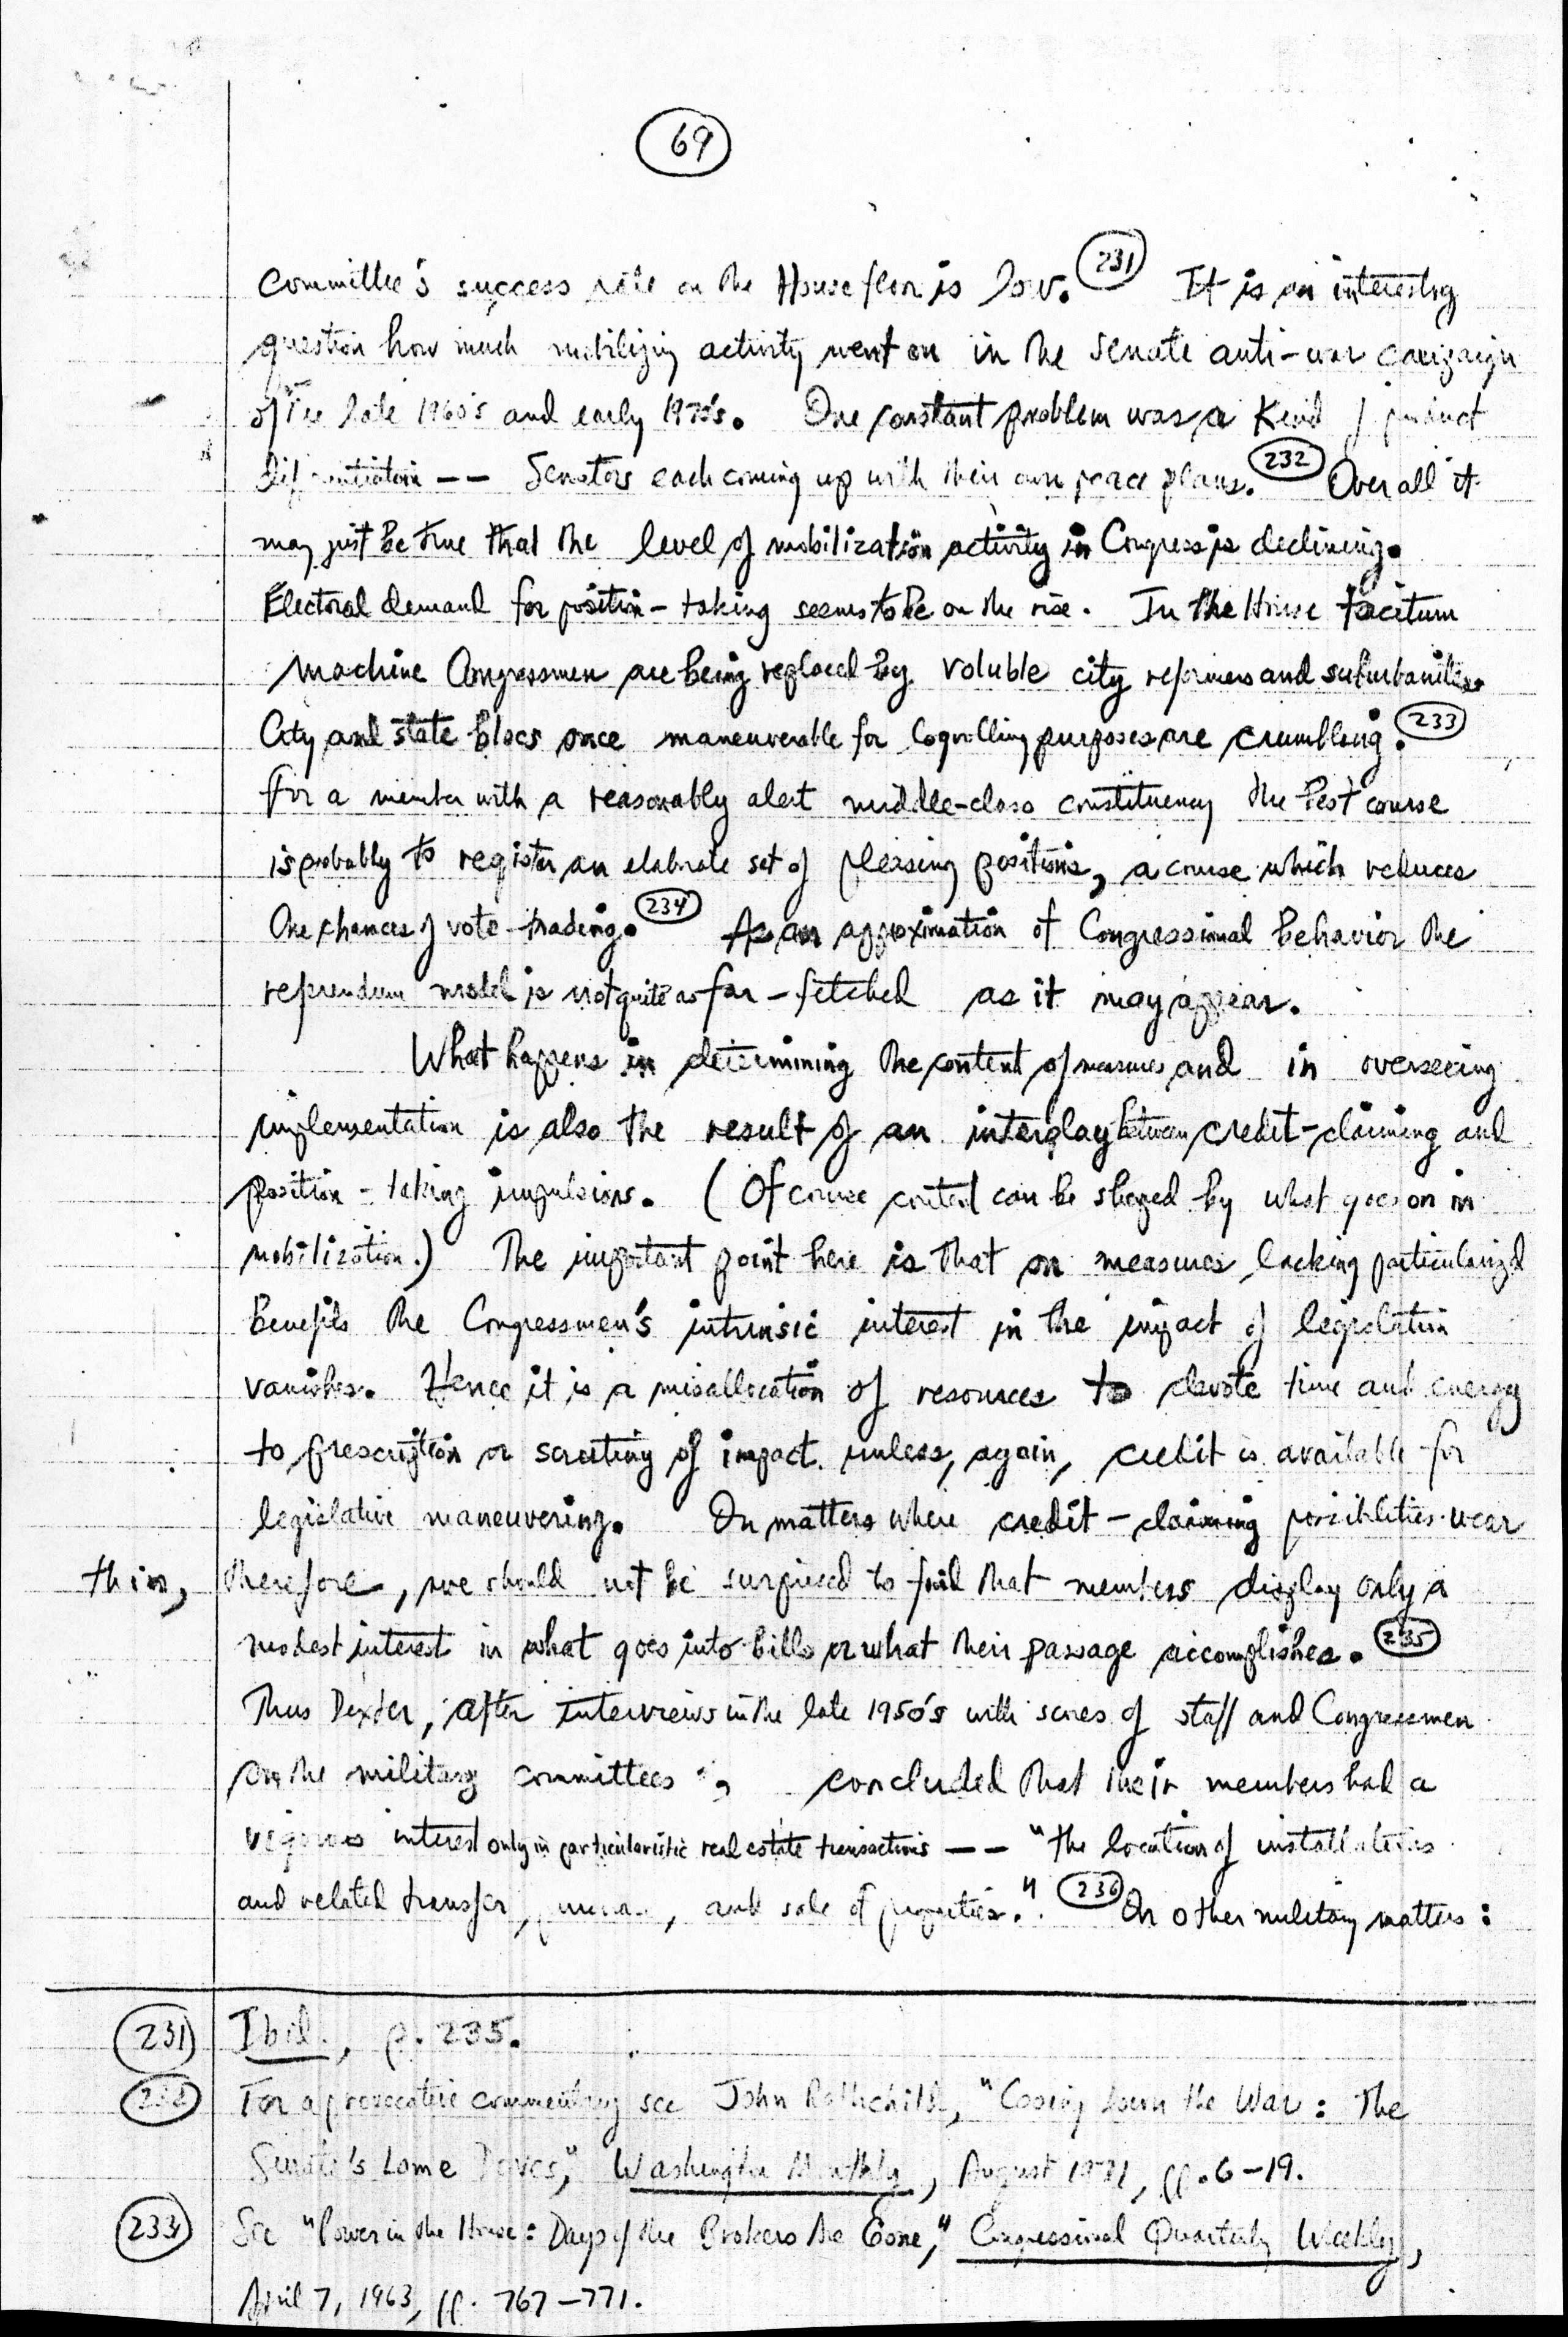 69
committee's success rate on the House floor is low. 231 It is an interesting
question how much mobilizing activity went on in the Senate anti-war campaign
of the late 1960's and early 1970's. One constant problem was a kind of product
differentiation -- Senators each coming up with their own peace plans. 232 Over all it
may just be true that the level of mobilization activity in Congress is declining.
Electoral demand for position-taking seems to be on the rise. In the House taciturn
machine Congressmen are being replaced by voluble city reformers and suburbanites.
City and state blocs once maneuverable for logrolling purposes are crumbling. 233
For a member with a reasonably alert middle-class constituency the best course
is probably to register an elaborate set of pleasing positions, a course which reduces
the chances of vote-trading. 234 As an approximation of Congressional behavior the
referendum model is not quite as far-fetched as it may appear.
What happens in determining the content of measures and in overseeing
implementation is also the result of an interplay between credit-claiming and
position-taking impulsions. (Of course content can be shaped by what goes on in
mobilization.) The important point here is that on measures lacking particularized
benefits the Congressmen's intrinsic interest in the impact of legislation
vanishes. Hence it is a misallocation of resources to devote time and energy
to prescription or scrutiny of impact unless, again, credit is available for
legislative maneuvering. On matters where credit-claiming possibilities wear
thin, therefore, we should not be surprised to find that members display only a
modest interest in what goes into bills or what their passage accomplishes. 235
Thus Dexter, after interviews in the late 1950's with scores of staff and Congressmen
on the military committees, concluded that their members had a
vigorous interest only in particularistic real estate transactions -- "the location of installations
and related transfer, , and sale of properties." 236 On other military matters:
231 Ibid., p. 235.
232 For a provocative commentary see John Rothchild, "Cooing Down the War: The
Senate's Lame Doves," Washington Monthly, August 1971, pp. 6-19.
233 See "Power in the House: Days of the Brokers Are Gone," Congressional Quarterly Weekly,
April 7, 1963, pp. 767-771.